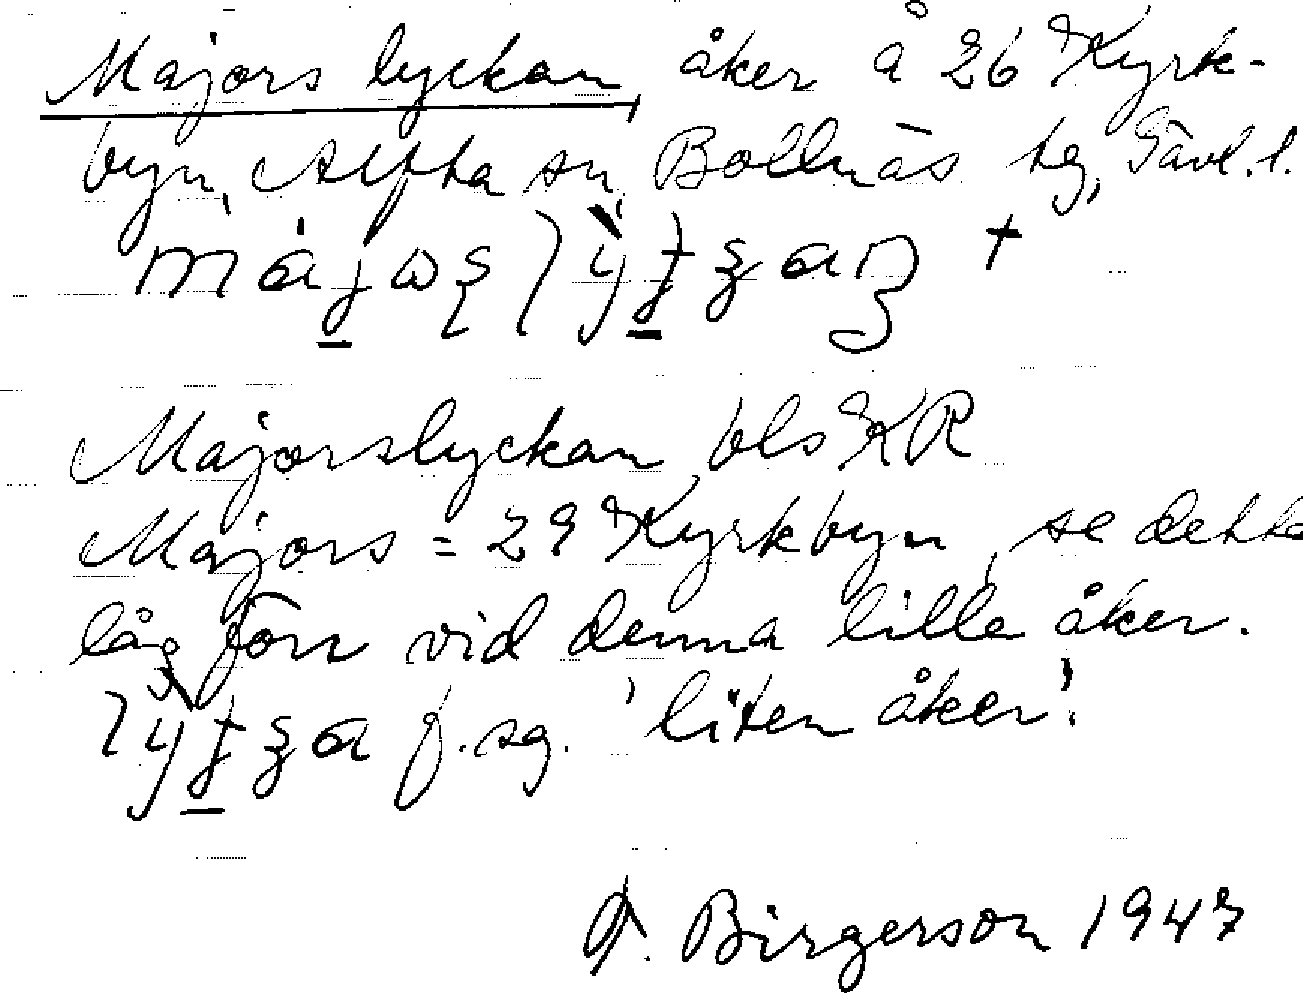 Majors lyckan, åker å 26 Kyrk-
byn, Alfta sn, Bollnäs tg, Gävl. l.
Majorslyckan bls KR
Majors = 29 Kyrkbyn, se detta
låg förr vid denna lille åker.
f. sg. 'liten åker'.
F. Birgerson 1947